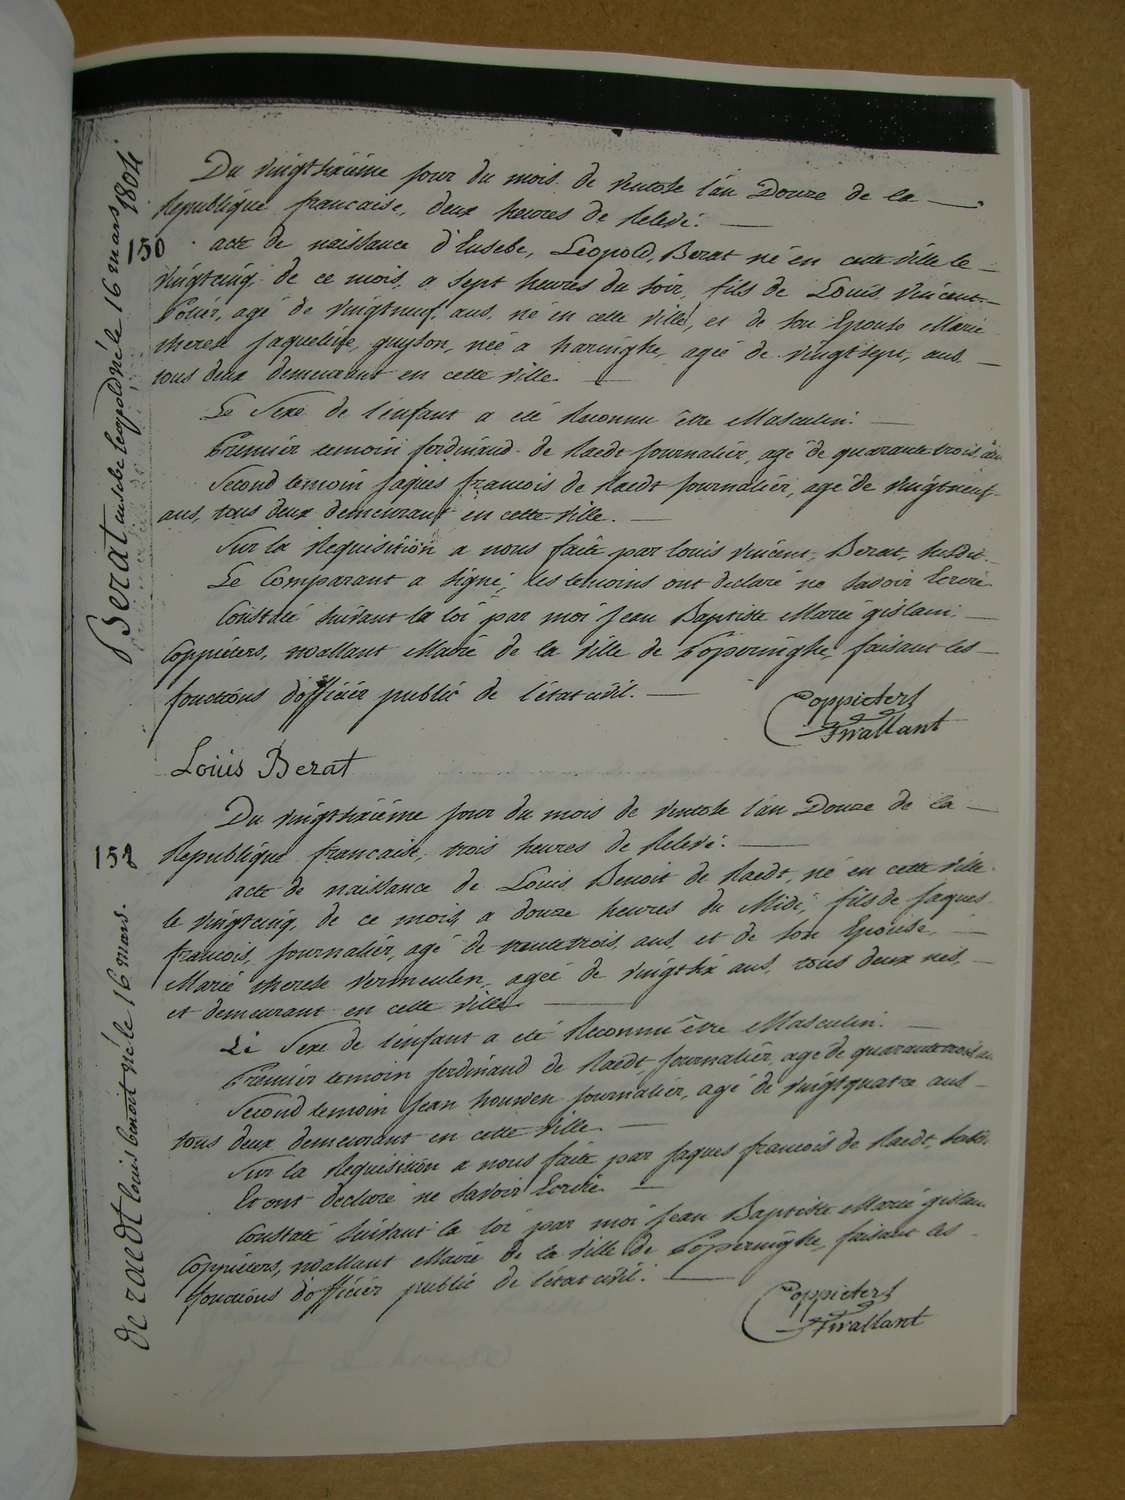 1804
Berat eusebe leopold né le 16 mars
150
Du vingtsixiéme jour du mois de ventose l'an Douze de la
Republique francaise, deux heures de Relevé.
acte de naissance d'Eusebe, Léopold, Berat né en cette ville le
vingtcinq de ce mois, a sept heures du soir, fils de Louis, vincent
agé de vingtneuf ans, né en cette ville, et de son Epouse Marie
therese jaqueline, guyson, née a haringhe, agée de vingtsept, ans
tous deux demeurant en cette ville
Le Sexe de l'enfant a eté Reconnu être Masculin.
Premier temoin ferdinand de Raedt journalier, agé de quarante trois ans
Second temoin jaques francois de Raedt journalier, agé de vingtneuf
ans, tous deux demeurant en cette ville.
Sur la Requisition a nous faite par louis vincent, Berat, susdit.
Le Comparant a signé, les temoins ont declaré ne savoir Ecrire
Constaté suivant la loi par moi jean Baptiste Marie gislain
Coppieters, wallant Maire de la ville de Poperinghe, faisant les
fonctions d'officier public de l'état civil.
Coppieters
Twallant
Louis Berat
151
De raedt louis benoit né le 16 mars.
Du vingtsixiéme jour du mois de ventose l'an Douze de la
Republique francaise, trois heures de Relevé.
acte de naissance de Louis Benoit de Raedt, né en cette ville
le vingtcinq de ce mois a douze heures du Midi, fils de jaques
francois, journalier, agé de trentetrois ans et de son Epouse,
Marie therese vermeulen, agée de vingtsix ans, tous deux nés,
et demeurant en cette ville
Le Sexe de l'enfant a eté Reconnu être Masculin.
Premier temoin ferdinand de Raedt journalier, agé de quarantetrois
Second temoin jean houwen journalier, agé de vingtquatre ans
tous deux demeurant en cette ville.
Sur la Requisition a nous faite par jaques francois de Raedt,
Et ont declaré ne savoir Ecrire
Constaté suivant la loi par moi jean Baptiste Marie gislain
Coppieters, wallant Maire de la ville de Poperinghe, faisant les
fonctions d'officier public de l'état civil.
Coppieters
Twallant